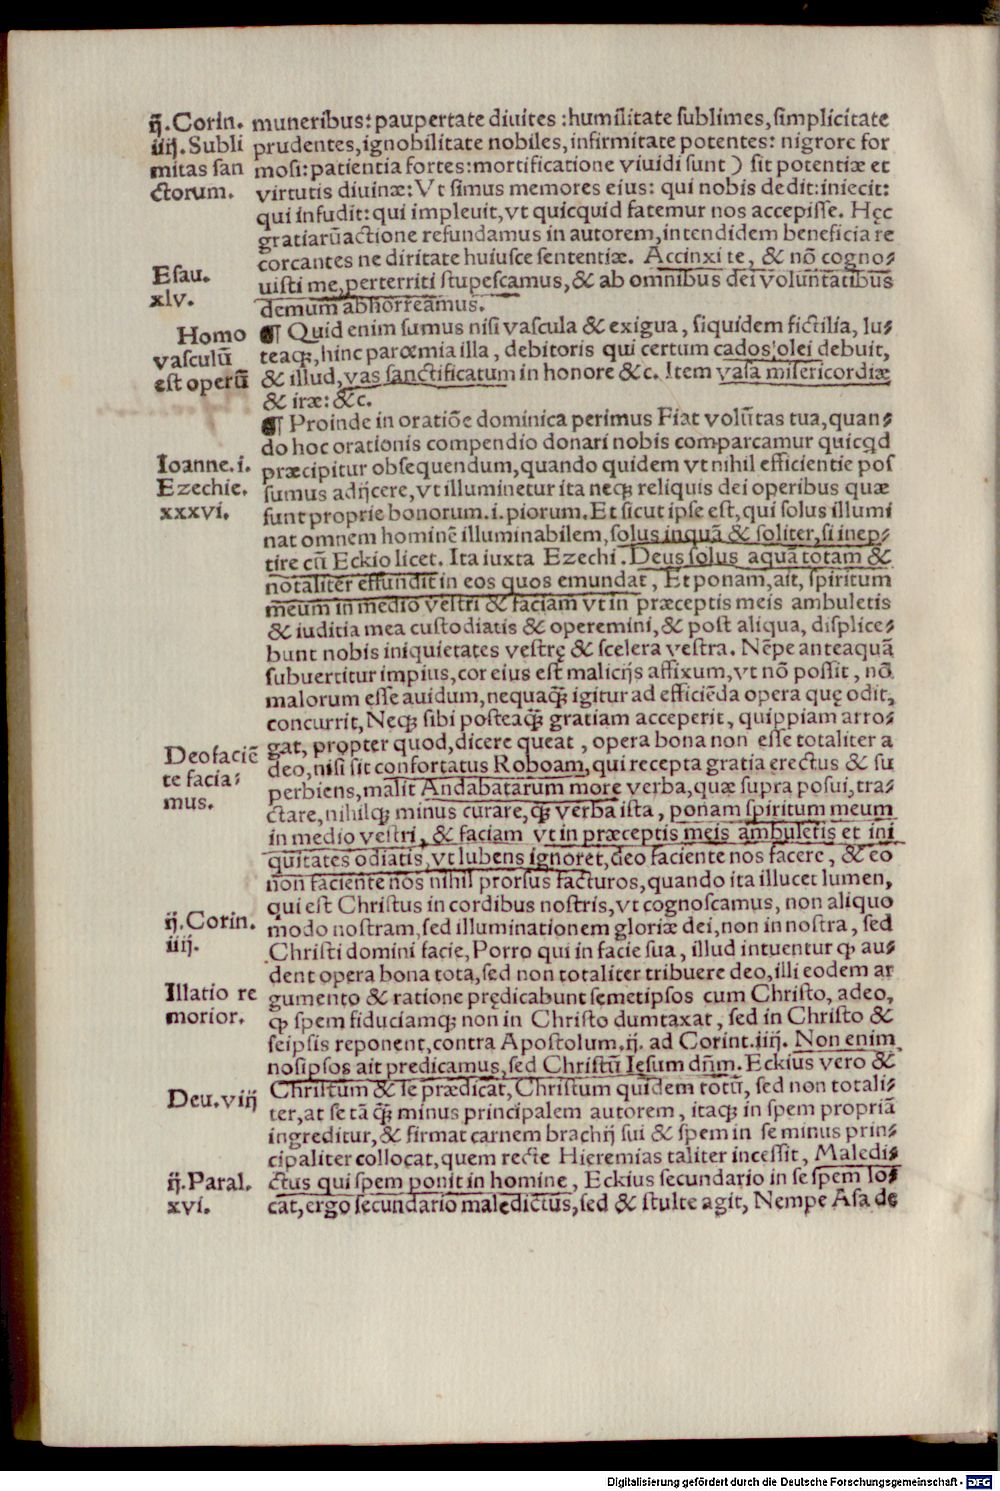 ij.Corin.
iiij.Subli
mitas san
ctorum.
muneribus: paupertate diuites :humilitate sublimes, simplicitate
prudentes, ignobilitate nobiles, infirmitate potentes: nigrore for
mosi: patientia fortes: mortificatione viuidi sunt ) sit potentiæ et
virtutis diuinæ: Vt simus memores eius: qui nobis dedit: iniecit:
qui infudit: qui impleuit, vt quicquid fatemur nos accepisse. Hęc
gratiarũactione refundamus in autorem, in tendidem beneficia re
corcantes ne diritate huiusce sententiæ. Accinxi te, & nõ cogno⸗
uisti me, perterriti stupescamus, & ab omnibus dei voluntatibus
demum abhorreamus.
Esau.
xlv.
Homo
vasculũ
est operũ
¶ Quid enim sumus nisi vascula & exigua, siquidem fictilia, lu⸗
teaqꝫ, hinc parœmia illa, debitoris qui certum cados olei debuit,
& illud, vas sanctificatum in honore &c. Item vasa misericordiæ
& iræ: &c.
¶ Proinde in oratiõe dominica perimus Fiat volũtas tua, quan⸗
do hoc orationis compendio donari nobis comparcamur quicqd
præcipitur obsequendum, quando quidem vt nihil efficientie pos
sumus adijcere, vt illuminetur ita neqꝫ reliquis dei operibus quæ
sunt proprie bonorum.i.piorum. Et sicut ipse est, qui solus illumi
nat omnem hominẽ illuminabilem, solus inquã & soliter, si inep⸗
tire cũ Eckio licet. Ita iuxta Ezechi. Deus solus aquã totam &
notaliter effundit in eos quos emundat, Et ponam, ait, spiritum
meum in medio vestri & faciam vt in præceptis meis ambuletis
& iuditia mea custodiatis & operemini, & post aliqua, displice⸗
bunt nobis iniquietates vestrę & scelera vestra. Nẽpe anteaquã
subuertitur impius, cor eius est malicijs affixum, vt nõ possit, nõ
malorum esse auidum, nequaqꝫ igitur ad efficiẽda opera quę odit,
concurrit, Neqꝫ sibi posteaqꝫ gratiam acceperit, quippiam arro⸗
gat, propter quod, dicere queat, opera bona non esse totaliter a
deo, nisi sit confortatus Roboam, qui recepta gratia erectus & su
perbiens, malit Andabatarum more verba, quæ supra posui, tra⸗
ctare, nihilqꝫ minus curare, qꝫ verba ista, ponam spiritum meum
in medio vestri, & faciam vt in præceptis meis ambuletis et ini
quitates odiatis, vt lubens ignoret, deo faciente nos facere, & eo
non faciente nos nihil prorsus facturos, quando ita illucet lumen,
qui est Christus in cordibus nostris, vt cognoscamus, non aliquo
modo nostram, sed illuminationem gloriæ dei, non in nostra, sed
Christi domini facie, Porro qui in facie sua, illud intuentur ꝙ au⸗
dent opera bona tota, sed non totaliter tribuere deo, illi eodem ar
gumento & ratione prędicabunt semetipsos cum Christo, adeo,
ꝙ spem fiduciamqꝫ non in Christo dumtaxat, sed in Christo &
seipsis reponent, contra Apostolum, ij. ad Corint.iiij. Non enim
nosipsos ait predicamus, sed Christũ Iesum dñm. Eckius vero &
Christum & se prædicat, Christum quidem totũ, sed non totali⸗
ter, at se tã qꝫ minus principalem autorem, itaqꝫ in spem propriã
ingreditur, & firmat carnem brachij sui & spem in se minus prin⸗
cipaliter collocat, quem recte Hieremias taliter incessit, Maledi⸗
ctus qui spem ponit in homine, Eckius secundario in se spem lo⸗
cat, ergo secundario maledictus, sed & stulte agit, Nempe Asa de
Ioanne.i.
Ezechie.
xxxvi.
Deo faciẽ
te facia⸗
mus.
ij.Corin.
iiij.
Illatio re
morior.
Deu.viij
ij.Paral.
xvi.
Digitalisierung gefördert durch die Deutsche Forschungsgemeinschaft - DFG